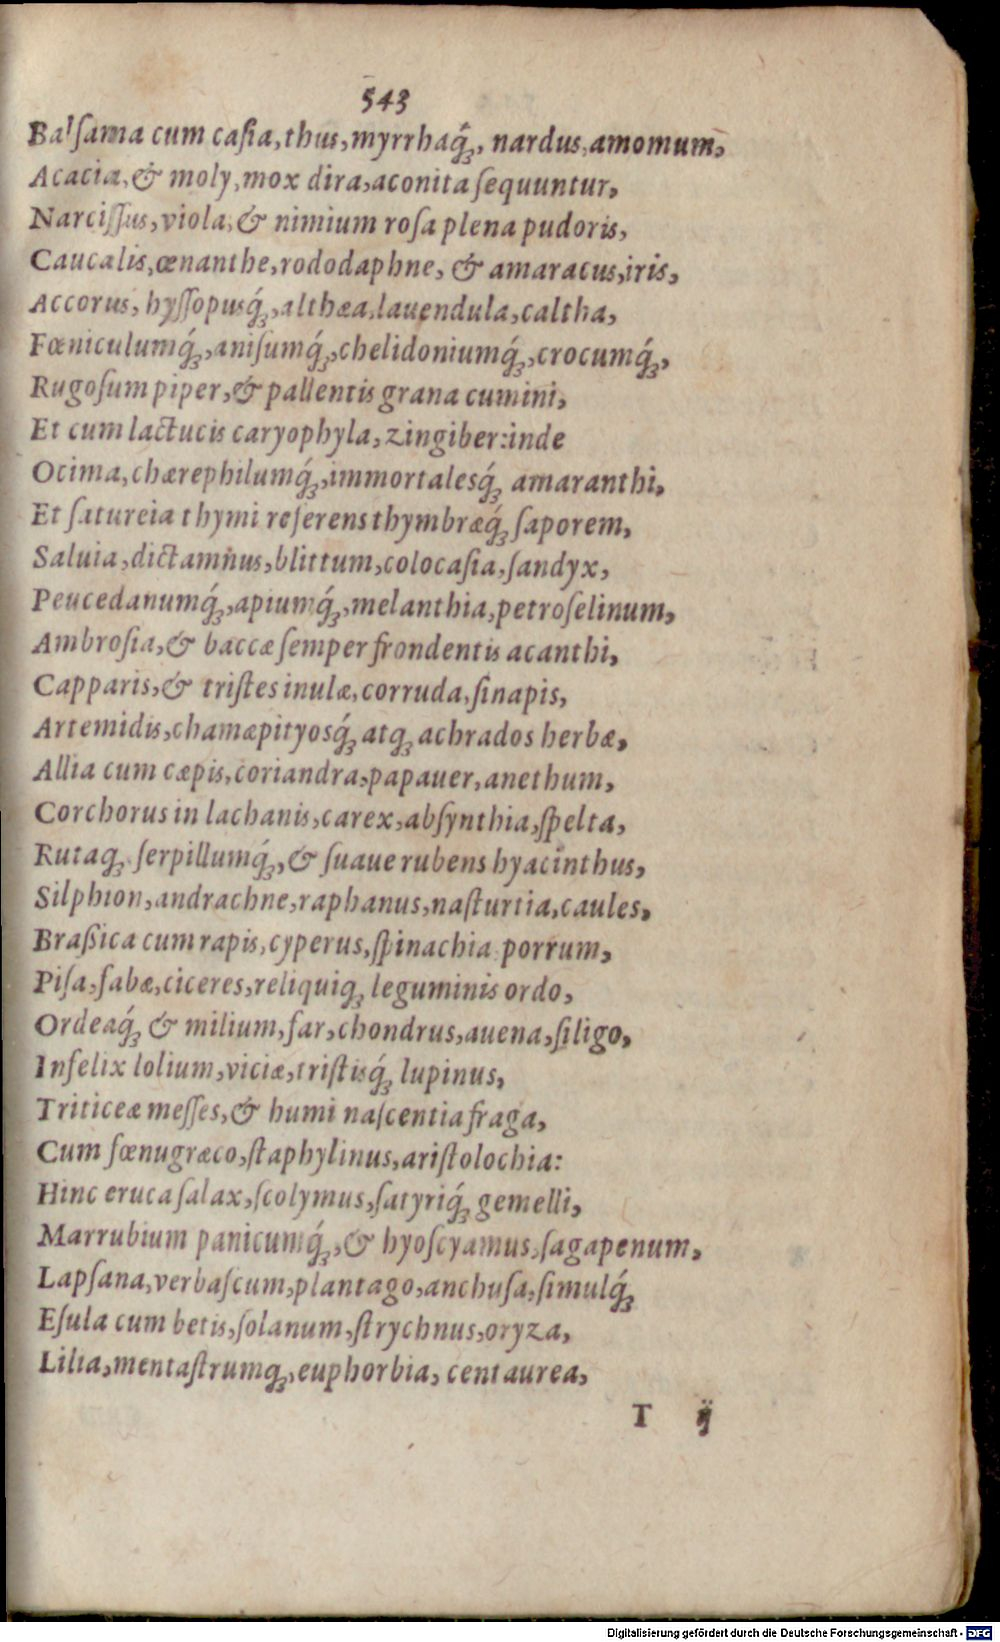 543
Balſama cum caſia, thus, myrrhaq́ꝫ, nardus, amomum,
Acaciæ, & moly, mox dira, aconita ſequuntur,
Narciſſus, viola, & nimium roſa plena pudoris,
Caucalis, œnanthe, rododaphne, & amaracus, iris,
Accorus, hyſſopusq́ꝫ, althæa, lauendula, caltha,
Fœniculumq́ꝫ, aniſumq́ꝫ, chelidoniumq́ꝫ, crocumq́ꝫ,
Rugoſum piper, & pallentis grana cumini,
Et cum lactucis caryophyla, zingiber: inde
Ocima, chærephilumq́ꝫ, immortalesq́ꝫ amaranthi,
Et ſatureia thymi referens thymbræq́ꝫ ſaporem,
Saluia, dictamnus, blittum, colocaſia, ſandyx,
Peucedanumq́ꝫ, apiumq́ꝫ, melanthia, petroſelinum,
Ambroſia, & baccæ ſemper frondentis acanthi,
Capparis, & triſtes inulæ, corruda, ſinapis,
Artemidis, chamæpityosq́ꝫ atqꝫ achrados herbæ,
Allia cum cæpis, coriandra, papauer, anethum,
Corchorus in lachanis, carex, abſynthia, ſpelta,
Rutaqꝫ ſerpillumq́ꝫ, & ſuaue rubens hyacinthus,
Silphion, andrachne, raphanus, naſturtia, caules,
Braßica cum rapis, cyperus, ſpinachia porrum,
Piſa, fabæ, ciceres, reliquiqꝫ leguminis ordo,
Ordeaq́ꝫ & milium, far, chondrus, auena, ſiligo,
Infelix lolium, viciæ, triſtisq́ꝫ lupinus,
Triticeæ meſſes, & humi naſcentia fraga,
Cum fœnugræco, ſtaphylinus, ariſtolochia:
Hinc eruca ſalax, ſcolymus, ſatyriq́ꝫ gemelli,
Marrubium panicumq́ꝫ, & hyoſcyamus, ſagapenum,
Lapſana, verbaſcum, plantago, anchuſa, ſimulq́ꝫ
Eſula cum betis, ſolanum, ſtrychnus, oryza,
Lilia, mentaſtrumqꝫ, euphorbia, centaurea,
T ij
Digitalisierung gefördert durch die Deutsche Forschungsgemeinschaft - DFG